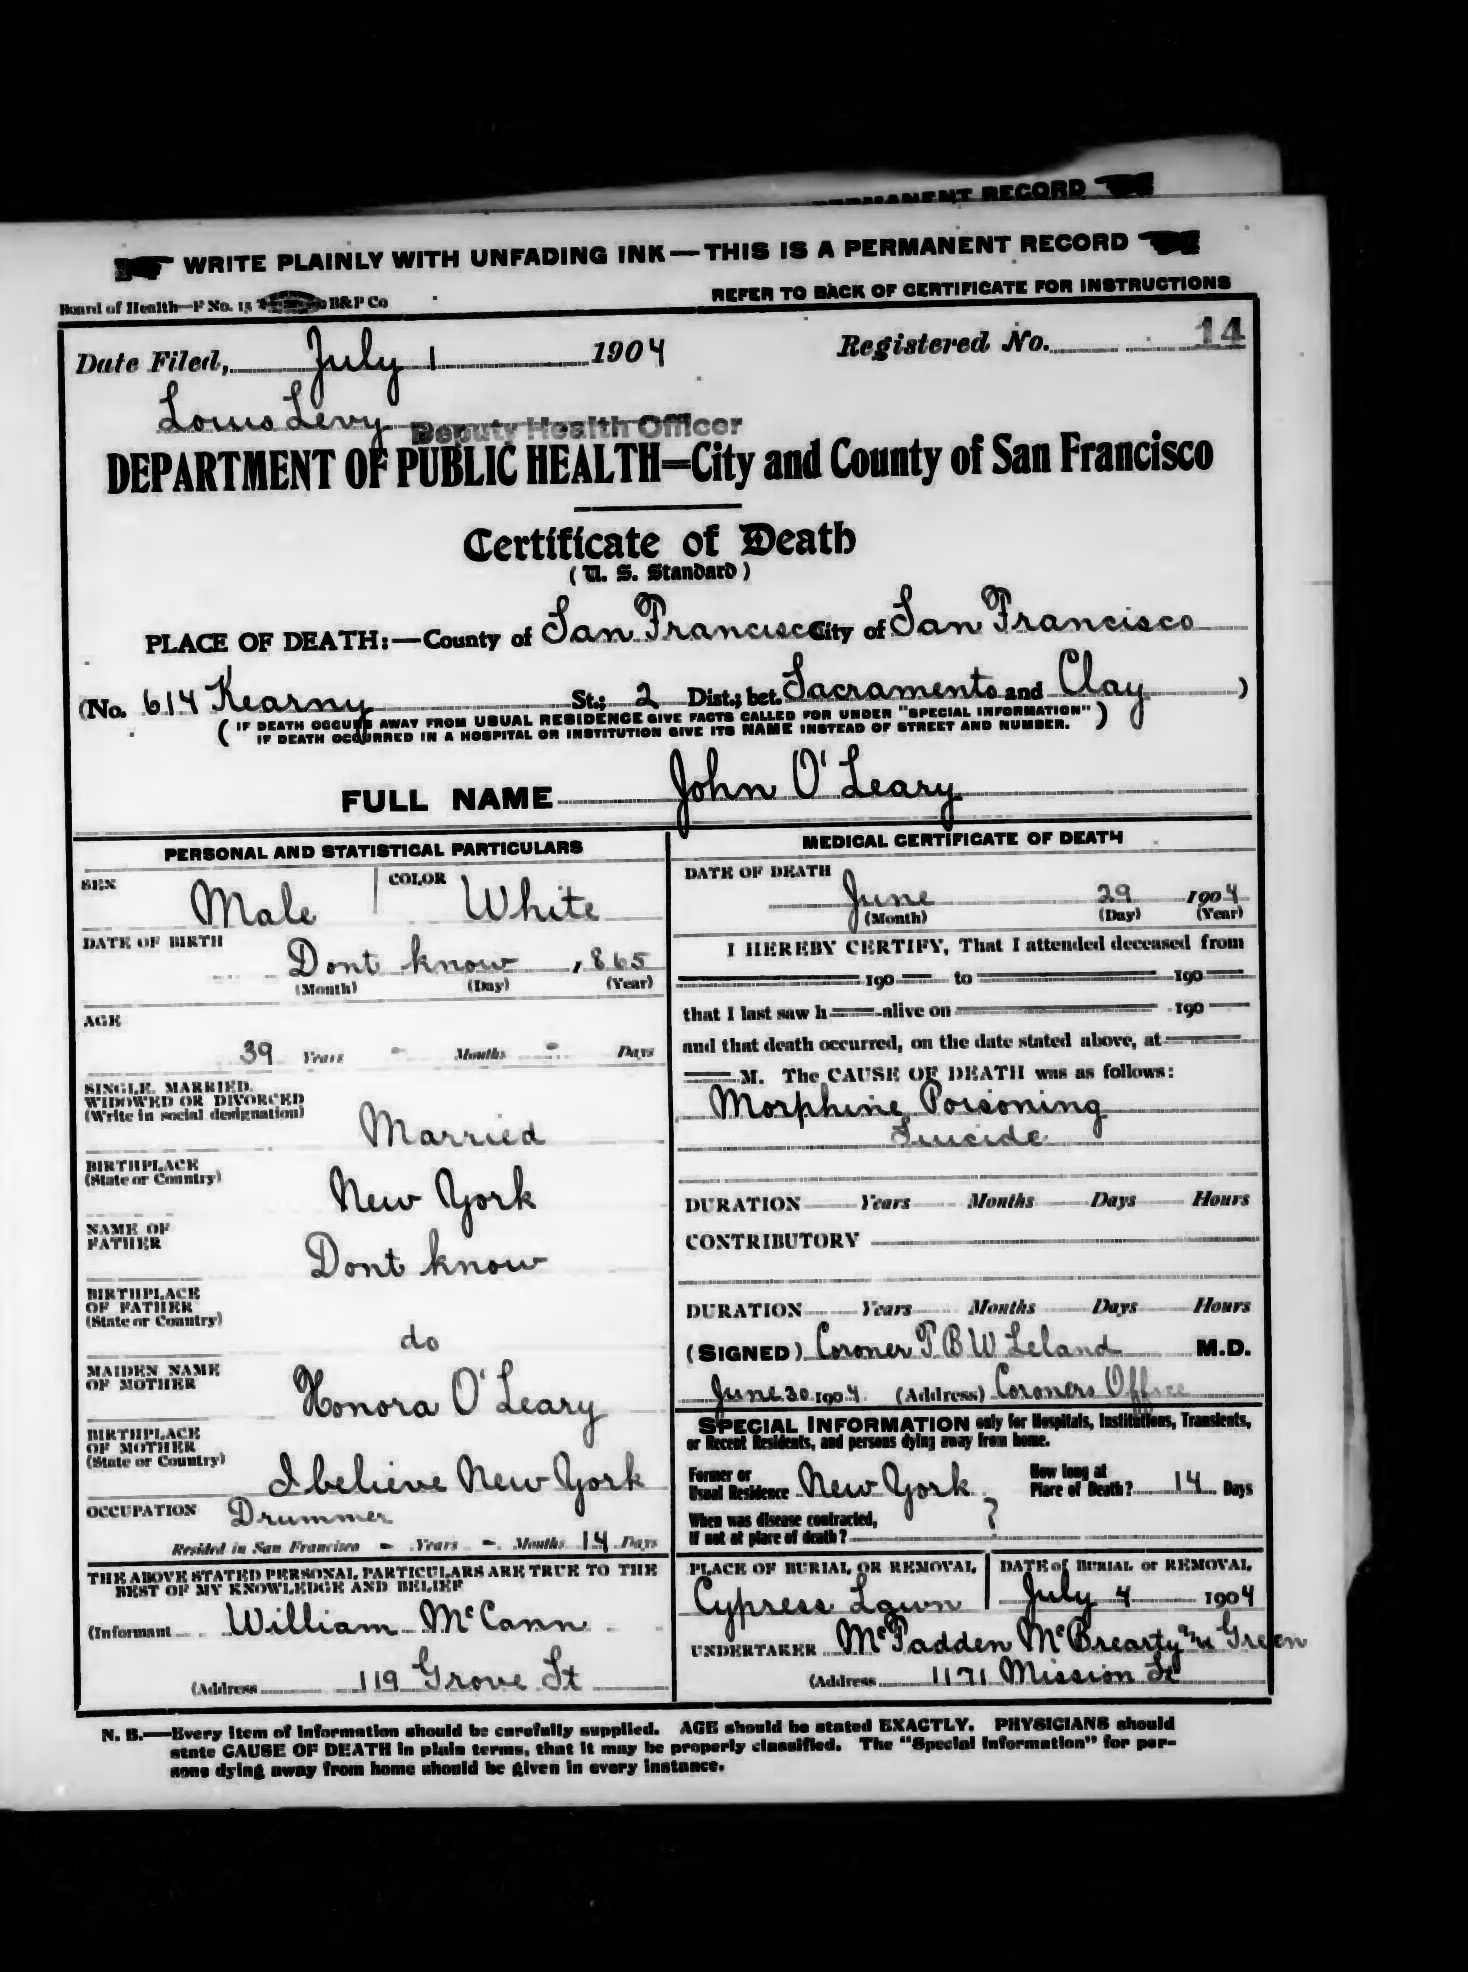 PERMANENT RECORD
WRITE PLAINLY WITH UNFADING INK — THIS IS A PERMANENT RECORD
Board of Health—F No. 15 B&P Co
REFER TO BACK OF CERTIFICATE FOR INSTRUCTIONS
Date Filed, July 1 1904 Registered No. 14
Louis Levy Deputy Health Officer
DEPARTMENT OF PUBLIC HEALTH=City and County of San Francisco
Certificate of Death
(U. S. Standard)
PLACE OF DEATH:—County of San Francisco City of San Francisco
(No. 614 Kearny St.; 2 Dist.; bet. Sacramento and Clay )
( IF DEATH OCCURS AWAY FROM USUAL RESIDENCE GIVE FACTS CALLED FOR UNDER "SPECIAL INFORMATION" )
IF DEATH OCCURRED IN A HOSPITAL OR INSTITUTION GIVE ITS NAME INSTEAD OF STREET AND NUMBER.
FULL NAME John O'Leary
PERSONAL AND STATISTICAL PARTICULARS
SEX Male COLOR White
DATE OF BIRTH Dont know , 865
(Month) (Day) (Year)
AGE
39 Years - Months - Days
SINGLE, MARRIED,
WIDOWED OR DIVORCED
(Write in social designation)
Married
BIRTHPLACE
(State or Country)
New York
NAME OF
FATHER
Dont know
BIRTHPLACE
OF FATHER
(State or Country)
do
MAIDEN NAME
OF MOTHER
Honora O'Leary
BIRTHPLACE
OF MOTHER
(State or Country)
I believe New York
OCCUPATION Drummer
Resided in San Francisco - Years - Months 14 Days
THE ABOVE STATED PERSONAL PARTICULARS ARE TRUE TO THE
BEST OF MY KNOWLEDGE AND BELIEF
(Informant William McCann
(Address 119 Grove St
MEDICAL CERTIFICATE OF DEATH
DATE OF DEATH
June 29 1904
(Month) (Day) (Year)
I HEREBY CERTIFY, That I attended deceased from
190 to 190
that I last saw h alive on 190
and that death occurred, on the date stated above, at
M. The CAUSE OF DEATH was as follows:
Morphine Poisoning
Suicide
DURATION Years Months Days Hours
CONTRIBUTORY
DURATION Years Months Days Hours
(SIGNED) Coroner T B W Leland M.D.
June 30 1904 (Address) Coroners Office
SPECIAL INFORMATION only for Hospitals, Institutions, Transients,
or Recent Residents, and persons dying away from home.
Former or
Usual Residence New York
How long at
Place of Death? 14 Days
When was disease contracted,
If not at place of death? ?
PLACE OF BURIAL OR REMOVAL,
Cypress Lawn
DATE of BURIAL or REMOVAL,
July 4 1904
UNDERTAKER McFadden McBrearty and Green
(Address 1171 Mission St
N. B.—Every item of information should be carefully supplied. AGE should be stated EXACTLY. PHYSICIANS should
state CAUSE OF DEATH in plain terms, that it may be properly classified. The "Special Information" for per-
sons dying away from home should be given in every instance.